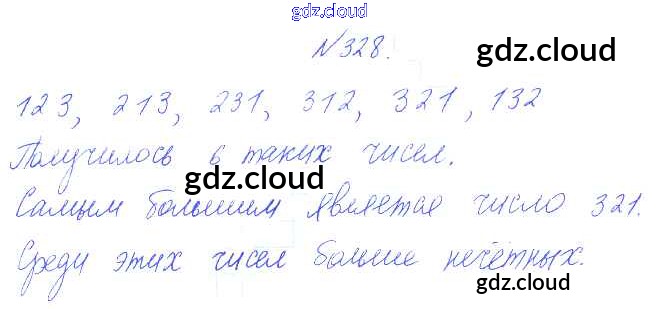 gdz.cloud
№328.
gdz.cloud
123, 213, 231, 312, 321, 132
gdz.cloud
gdz.cloud
Получилось 6 таких чисел.
gdz.cloud
Самым большим является число 321.
Среди этих чисел больше нечётных.
gdz.cloud
gdz.cloud